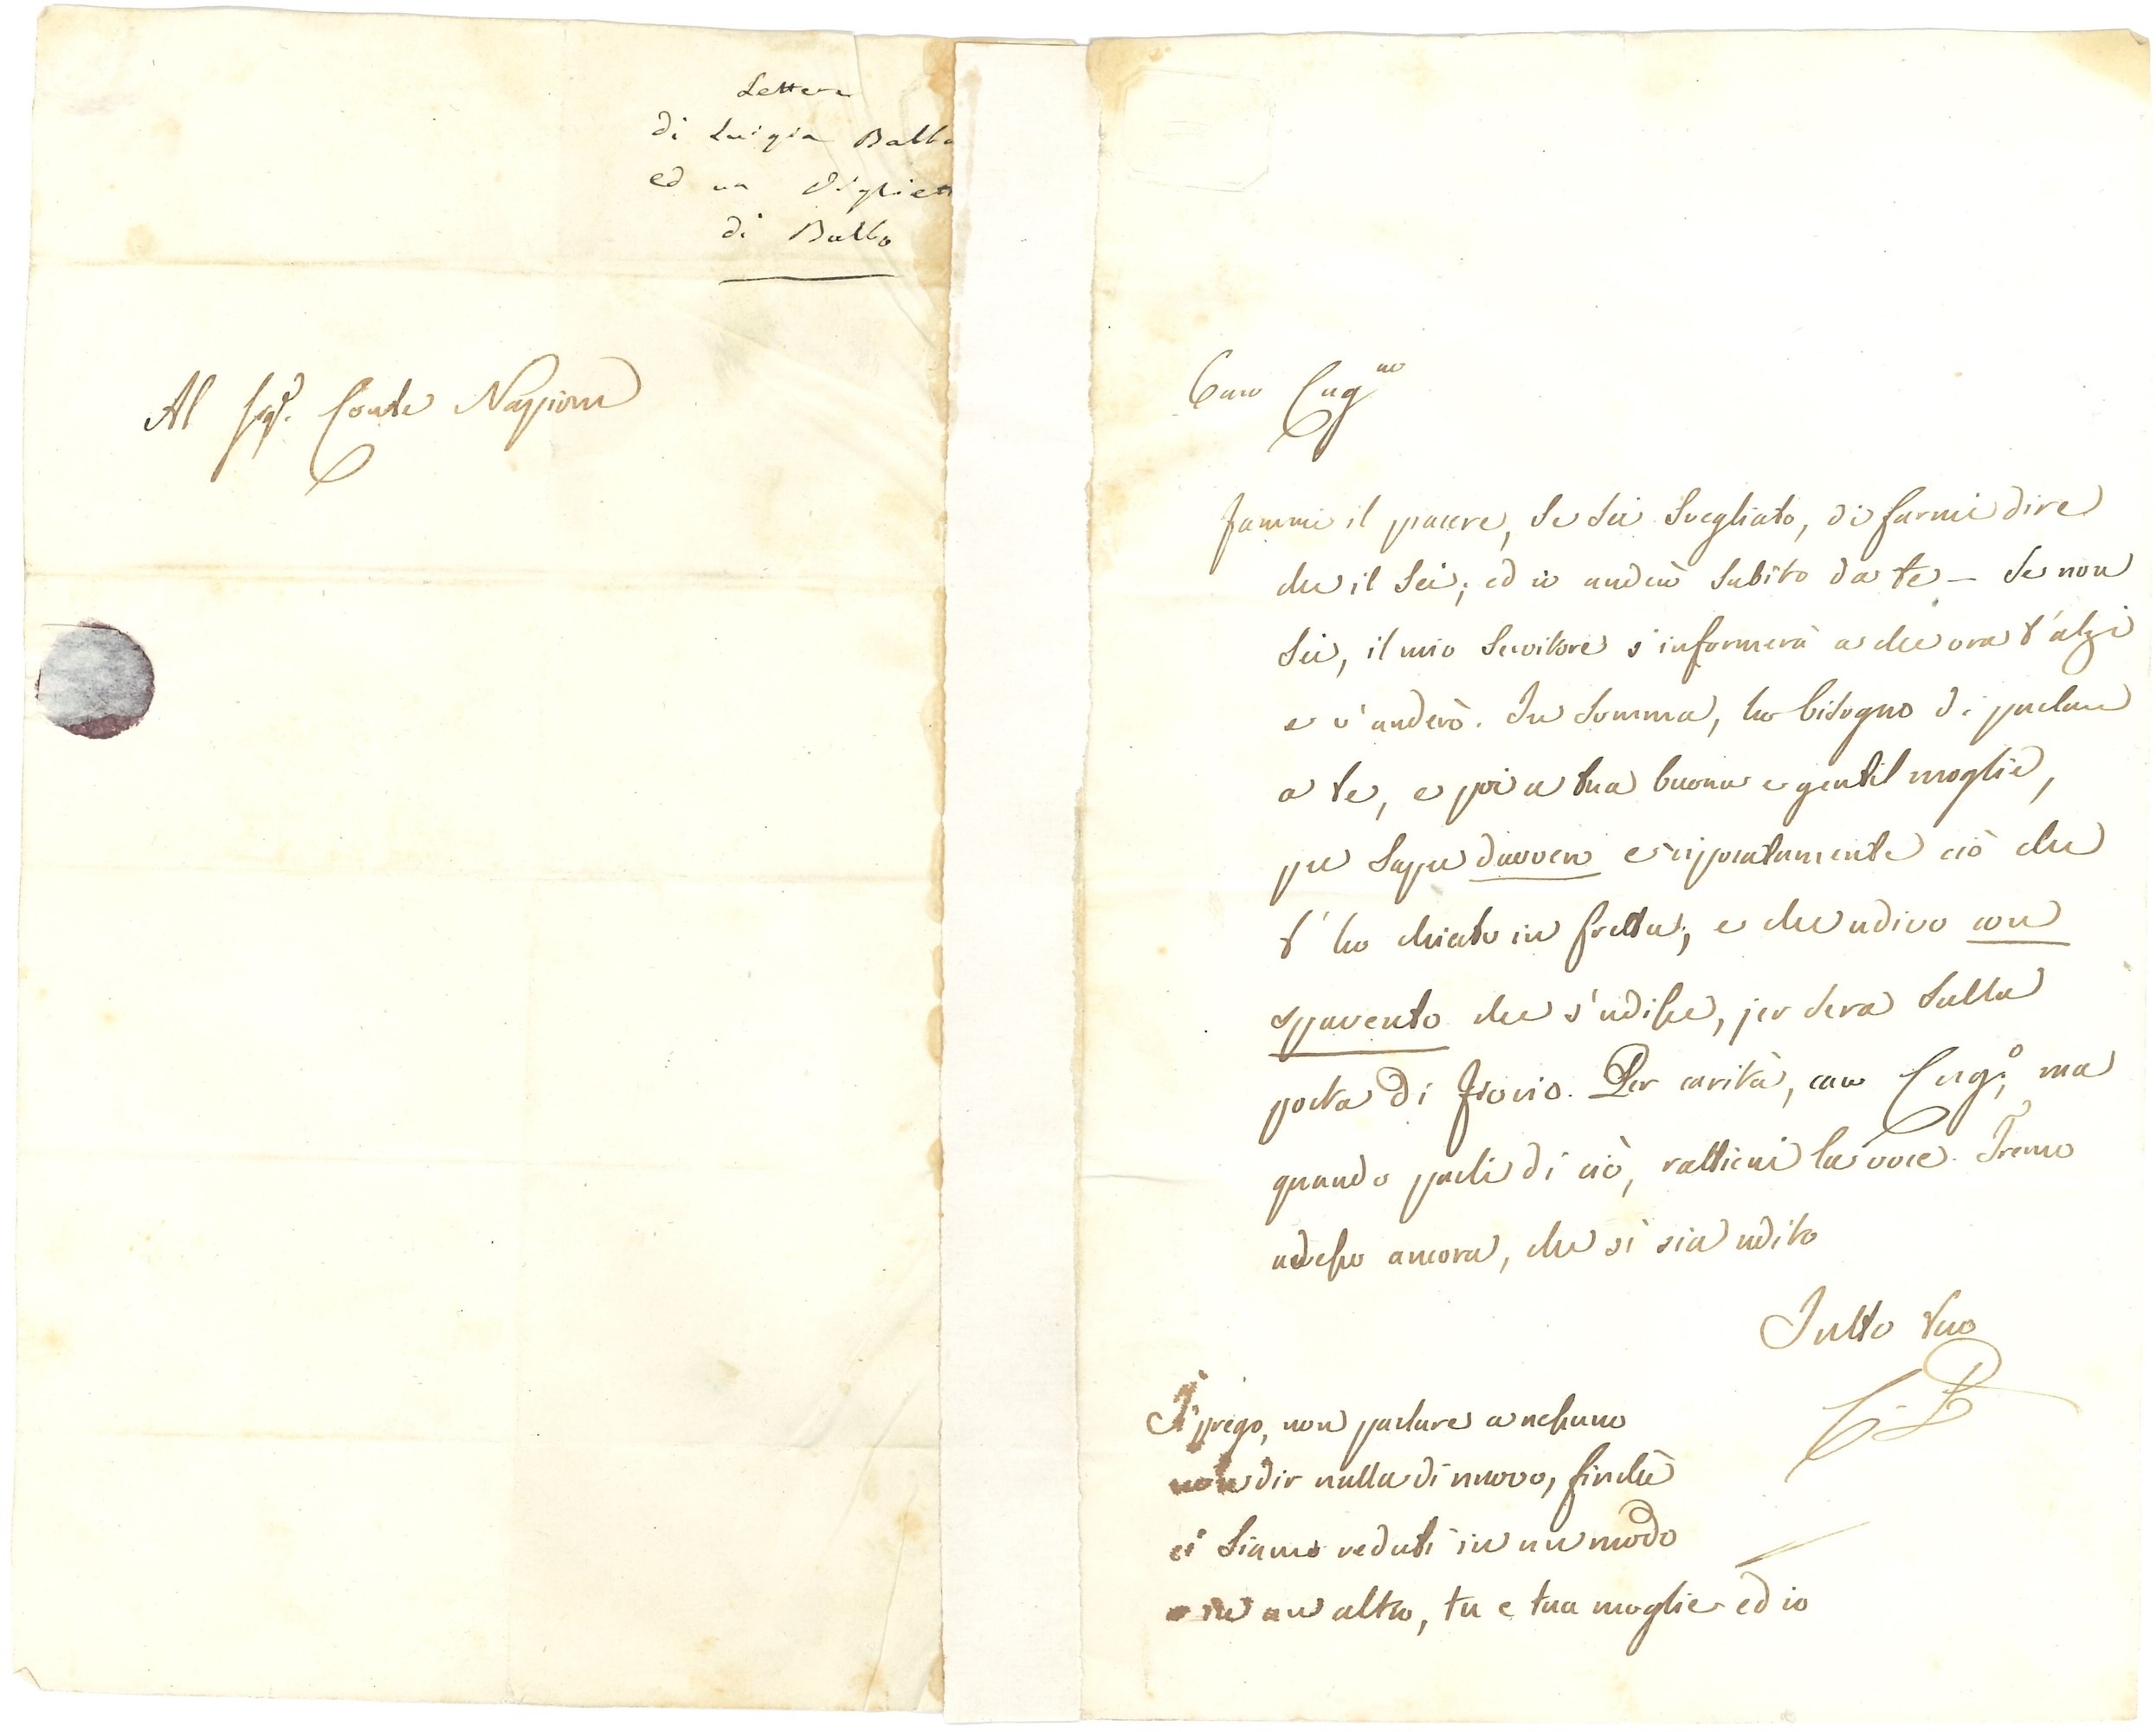 Lettera
di Luigia Balbo
ed un Vigliett
di Balbo
Al Sigr. Conte Nappione
Caro Cugno
Fammi il piacere, se sei svegliato, di farmi dire
che il sei; ed io anderò subito da te – se non
sei, il mio servitore s'informerà a che ora t'alzi
e v'anderò. In somma, ho bisogno di parlare
a te, e poi a tua buona e gentil moglie,
per saper davvero e riposatamente ciò che
t'ho chiesto in fretta; e che udivo con
spavento che s'udisse, jer sera sulla
porta di Fiorio. Per carità, caro Cugo, ma
quando parli di ciò, rattieni la voce. Tremo
adesso ancora, che si sia udito
Tutto tuo
C. B
Ti prego, non parlare a nessuno
non dir nulla di nuovo, finchè
ci siamo veduti in un modo
o in un altro, tu e tua moglie ed io